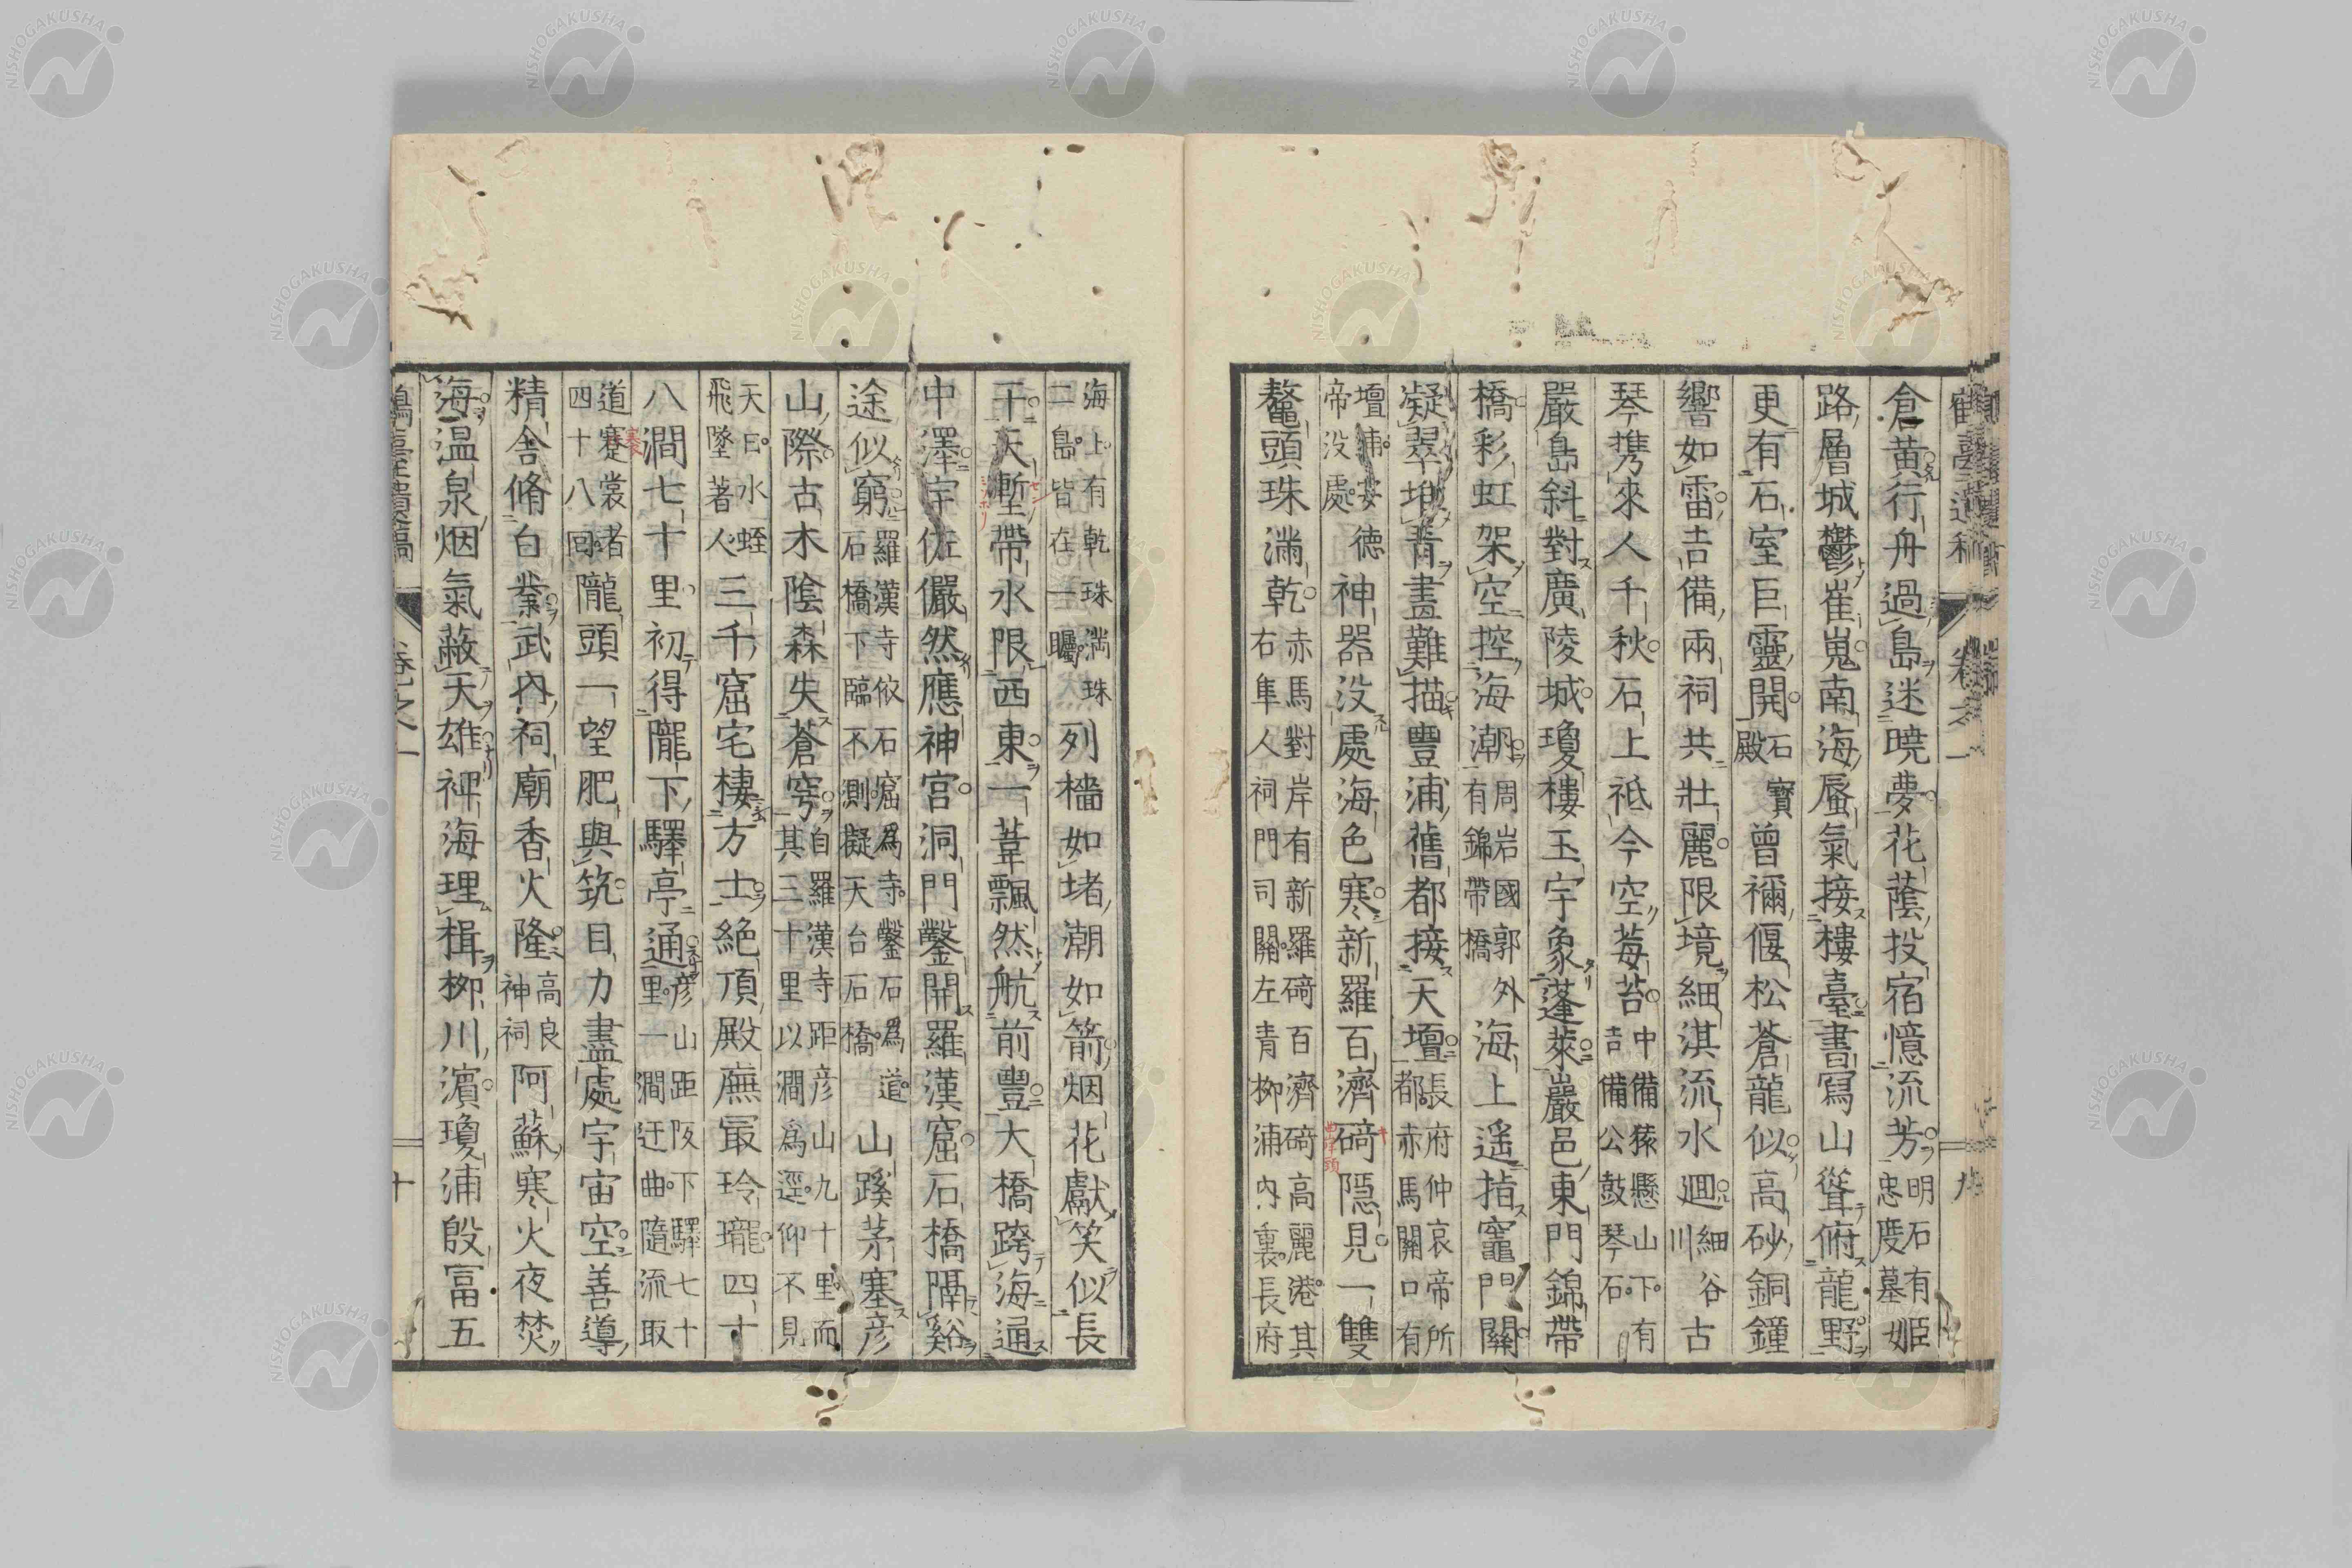 倉黄行舟過島迷曉夢花蔭投宿憶流芳明石有姫忠度墓
路層城鬱崔嵬南海蜃氣接樓臺書寫山聳俯龍野
更有石室巨靈開石寶殿曾禰偃松蒼龍似高砂銅鐘
響如雷吉備兩祠共壯麗限境細淇流水廻細谷川古
琴携來人千秋石上祇今空莓苔中備猿懸山下有吉備公鼓琴石
嚴島斜對廣陵城瓊樓玉宇象蓬萊巖邑東門錦帶
橋彩虹架空控海潮周岩國郭外有錦帶橋海上遙指竈門關
凝翠堆青畫難描豐浦舊都接天壇長府仲哀帝所都赤馬關口有
壇浦安德帝没處神器没處海色寒新羅百濟碕隱見一雙
鼇頭珠滿乾赤馬對岸有新羅碕百濟碕高麗港其右隼人祠門司關左青柳浦内裏長府
海上有乾珠滿珠二島皆在一矚列檣如堵潮如箭烟花獻笑似長
干天塹帶水限西東一葦飄然航前豐大橋跨海通
中澤宇佐儼然應神宮洞門鑿開羅漢窟石橋隔谿
途似窮羅漢寺倣石窟爲寺鑿石爲道石橋下臨不測擬天台石橋山蹊茅塞彦
山際古木陰森失蒼穹自羅漢寺距彦山九十里而其三十里以澗爲逕仰不見
天日水蛭飛墜著人三千窟宅棲方士絶頂殿廡最玲瓏四十
八澗七十里初得隴下驛亭通彦山距阪下驛七十里一澗迂曲隨流取
道蹇裳者四十八回隴頭一望肥與筑目力盡處宇宙空善導
精舎脩白業武内祠廟香火隆高良神祠阿蘇寒火夜焚
海温泉烟氣蔽天雄裨海理楫柳川濱瓊浦殷富五